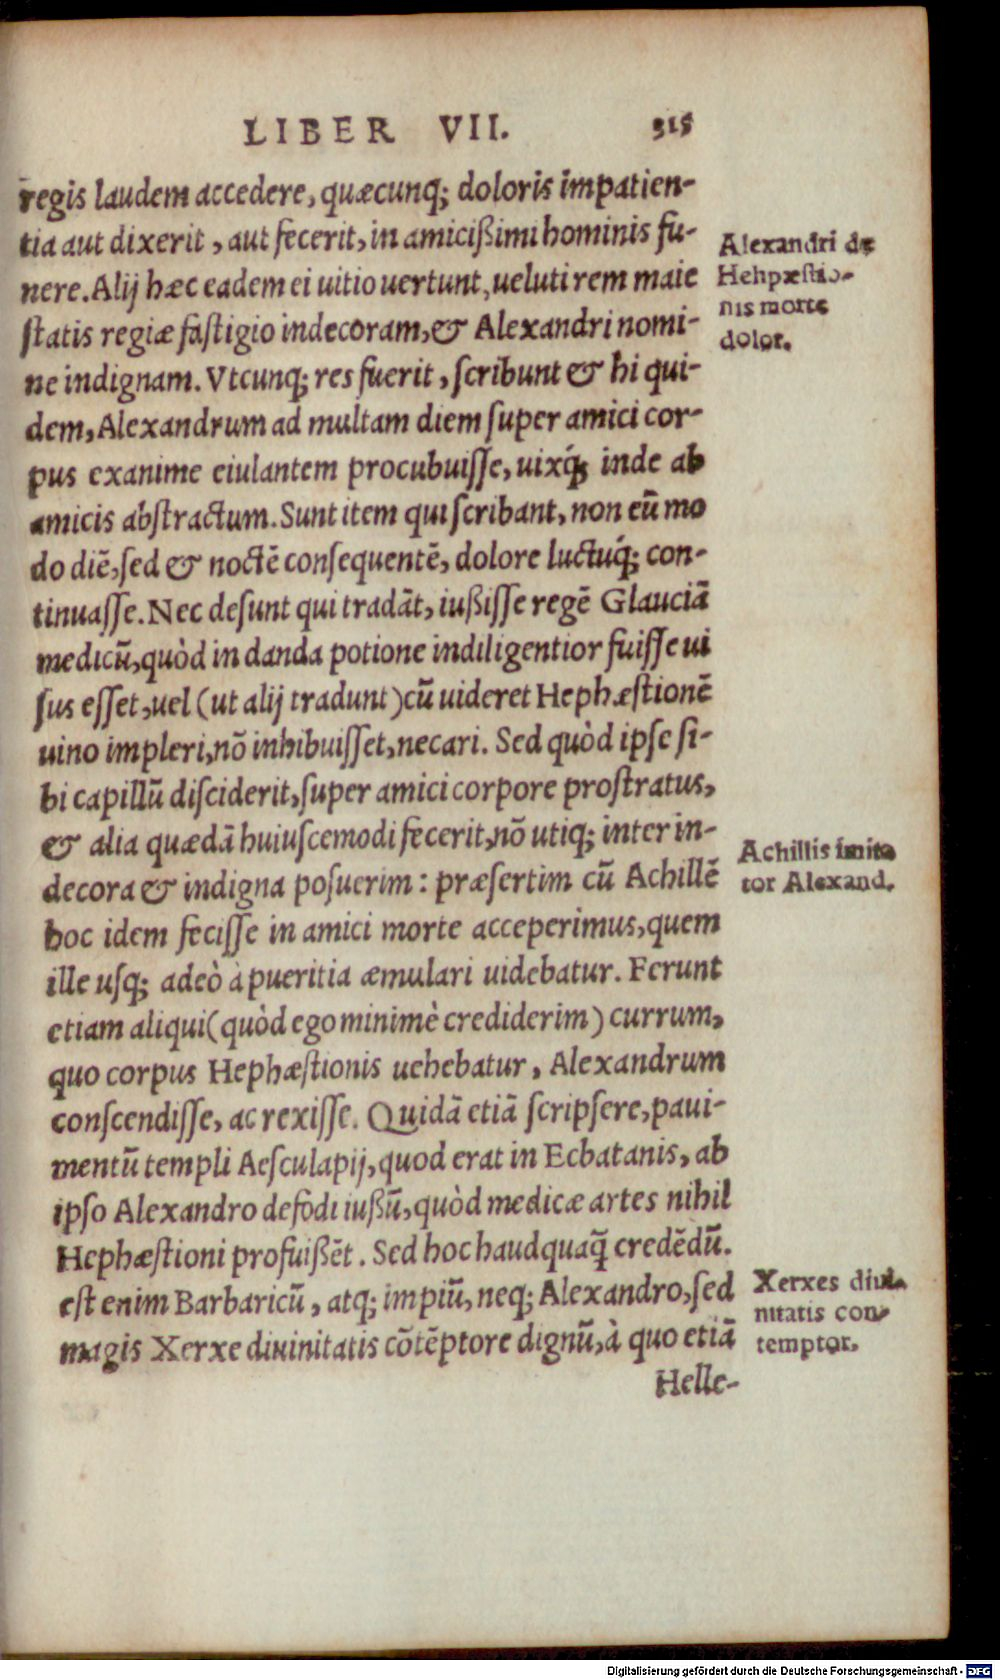 LIBER VII. 315
regis laudem accedere, quæcunq; doloris impatien-
tia aut dixerit, aut fecerit, in amicißimi hominis fu-
nere. Alij hæc eadem ei uitio uertunt, ueluti rem maie
ſtatis regiæ faſtigio indecoram, & Alexandri nomi-
ne indignam. Vtcunq; res fuerit, ſcribunt & hi qui-
dem, Alexandrum ad multam diem ſuper amici cor-
pus exanime eiulantem procubuiſſe, uixq́; inde ab
amicis abſtractum. Sunt item qui ſcribant, non eũ mo
do diẽ, ſed & noctẽ conſequentẽ, dolore luctuq́; con-
tinuaſſe. Nec deſunt qui tradãt, iußiſſe regẽ Glauciã
medicũ, quòd in danda potione indiligentior fuiſſe ui
ſus eſſet, uel (ut alij tradunt) cũ uideret Hephæſtionẽ
uino impleri, nõ inhibuiſſet, necari. Sed quòd ipſe ſi-
bi capillũ diſciderit, ſuper amici corpore proſtratus,
& alia quædã huiuſcemodi fecerit, nõ utiq; inter in-
decora & indigna poſuerim: præſertim cũ Achillẽ
hoc idem feciſſe in amici morte acceperimus, quem
ille uſq; adeò à pueritia æmulari uidebatur. Ferunt
etiam aliqui (quòd ego minimè crediderim) currum,
quo corpus Hephæſtionis uehebatur, Alexandrum
conſcendiſſe, ac rexiſſe. Quidã etiã ſcripſere, paui-
mentũ templi Aeſculapij, quod erat in Ecbatanis, ab
ipſo Alexandro defodi iußũ, quòd medicæ artes nihil
Hephæſtioni profuißẽt. Sed hoc haudquaq̃ credẽdũ.
eſt enim Barbaricũ, atq; impiũ, neq; Alexandro, ſed
magis Xerxe diuinitatis cõtẽptore dignũ, à quo etiã
Helle-
Alexandri de
Hehpæſtio-
nis morte
dolor.
Achillis imita
tor Alexand.
Xerxes diui-
nitatis con-
temptor.
Digitalisierung gefördert durch die Deutsche Forschungsgemeinschaft - DFG